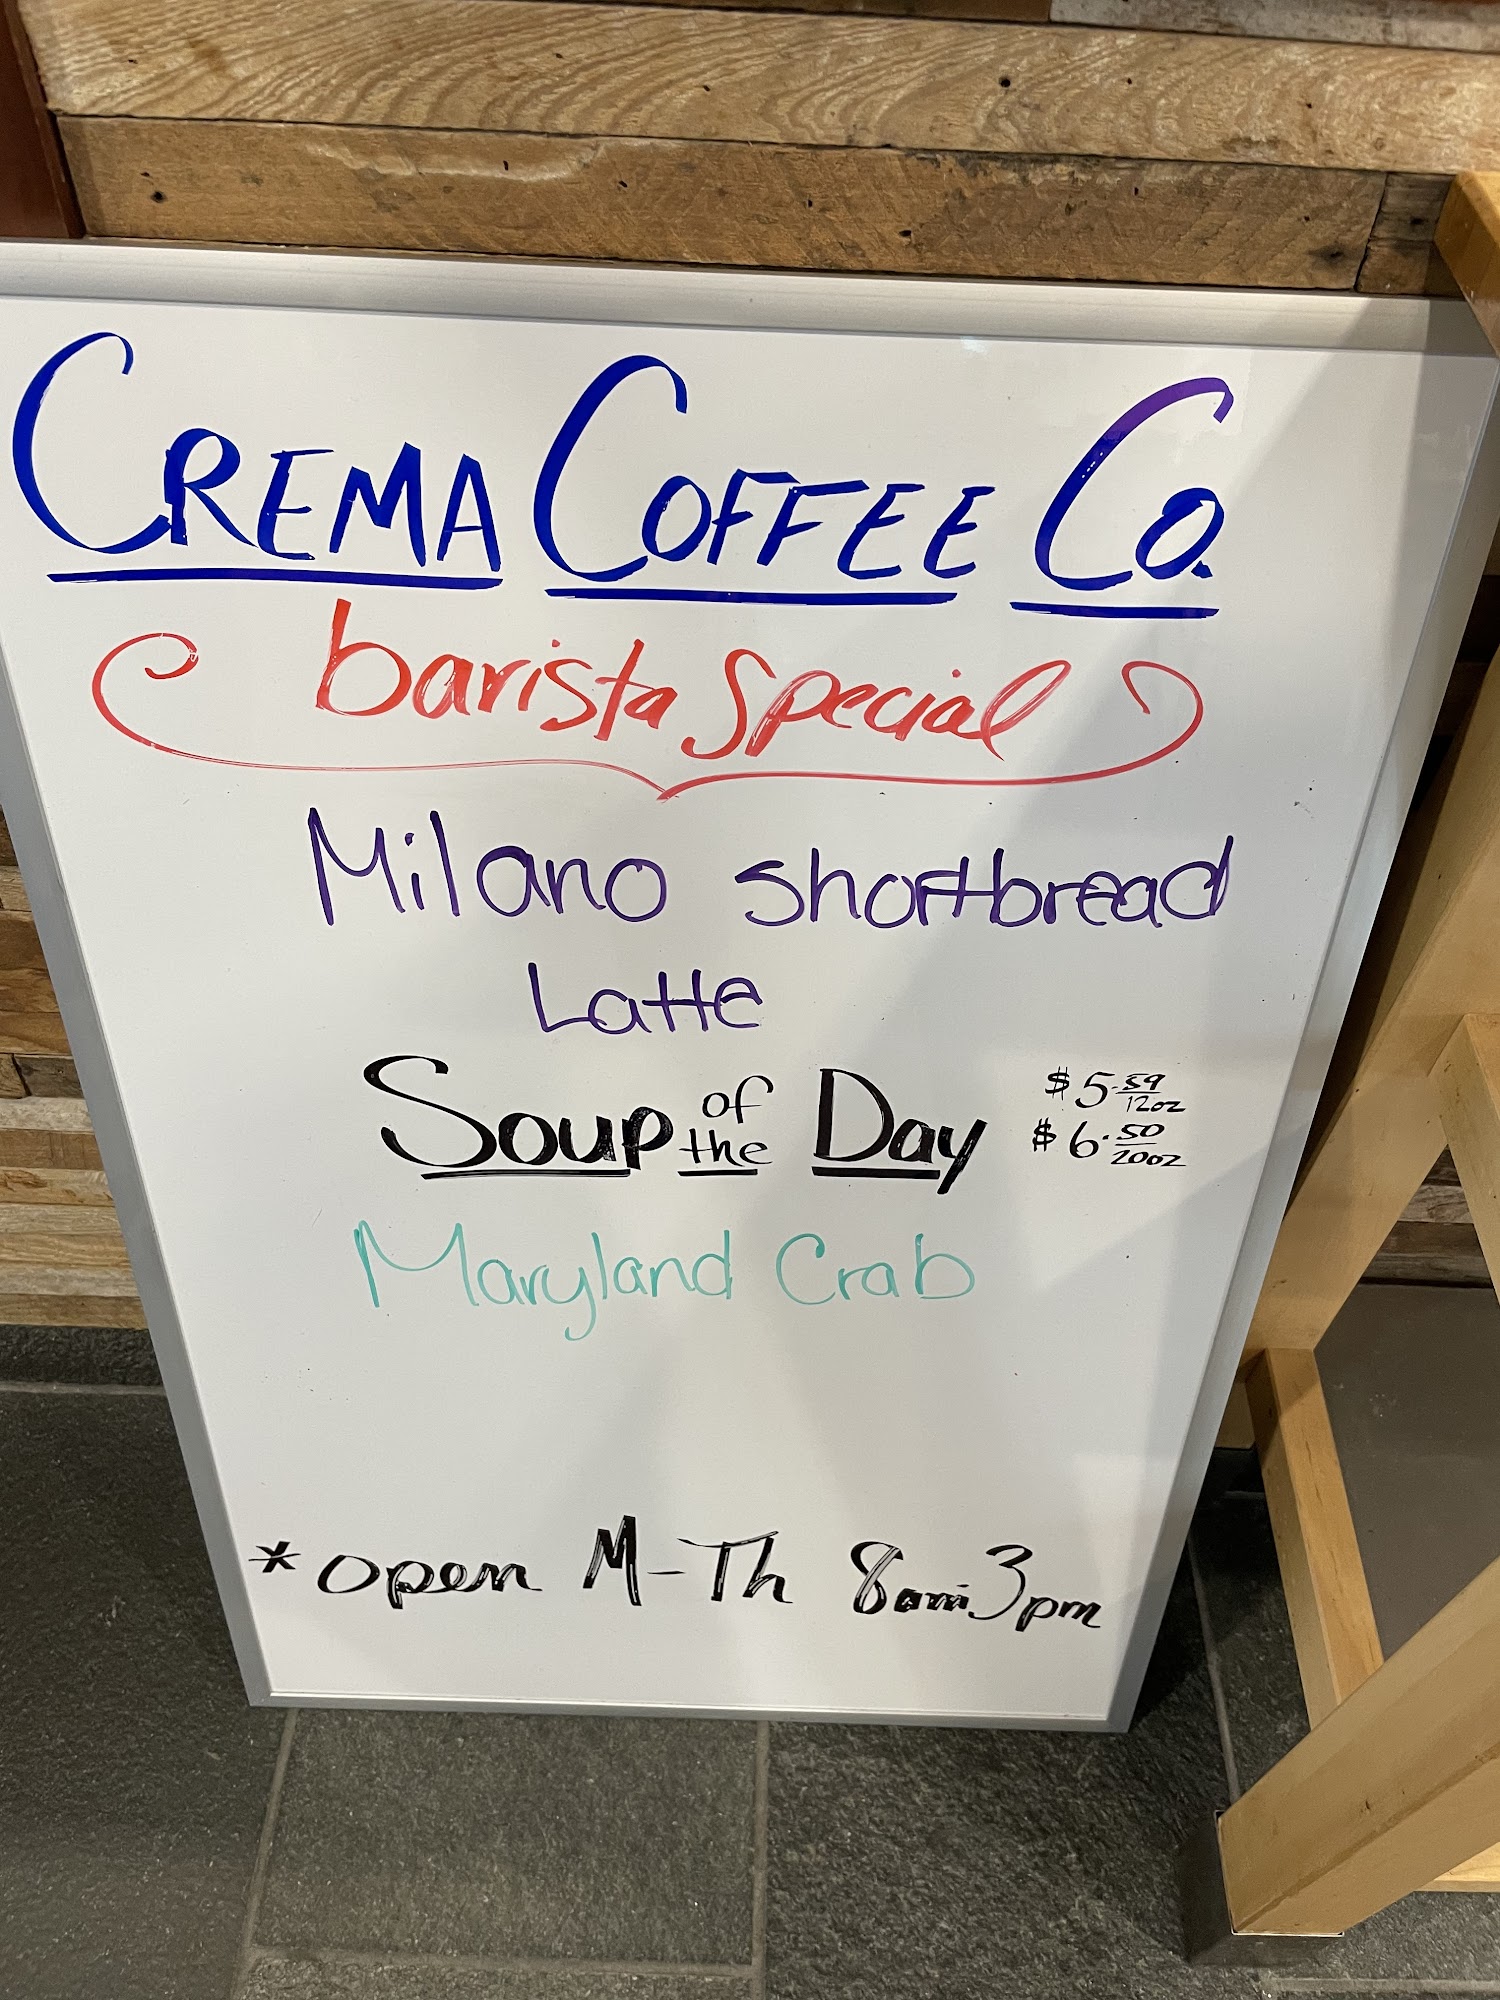 CREMA COFFEE CO.
barista special
Milano shortbread
Latte
Soup of the Day
$5.59 12oz
$6.50 20oz
Maryland Crab
*open M-Th 8am-3pm